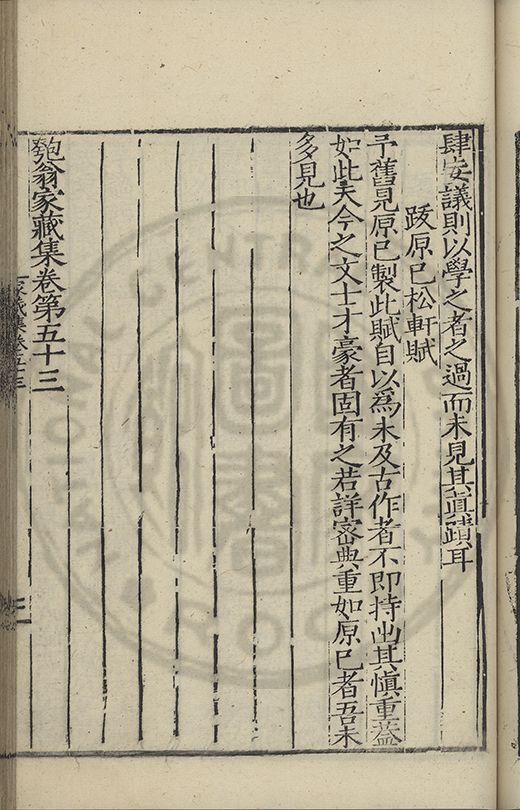 肆妄議則以學之者之過而未見其真蹟耳
跋原巳松軒賦
予舊見原巳製此賦自以為未及古作者不即持出其慎重蓋
如此夫今之文士才豪者固有之若詳密典重如原巳者吾未
多見也
匏翁家藏集卷第五十三